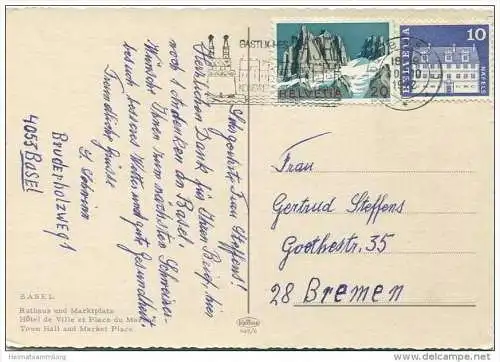 BASTLICHES
HELVETIA 20
HELVETIA
10
NÄFELS
Sehr geehrte Frau Steffens!
Herzlichen Dank für Ihren Brief, hier
noch 1 Andenken an Basel.
Wünsche Ihnen zum nächsten Schweizer-
besuch besseres Wetter und gute Gesundheit
Freundliche Grüsse
Bruderholzweg 1
4053 BASEL
Frau
Gertrud Steffens
Goethestr. 35
28 Bremen
BASEL
Rathaus und Marktplatz
Hôtel de Ville et Place du
Town Hall and Market Place